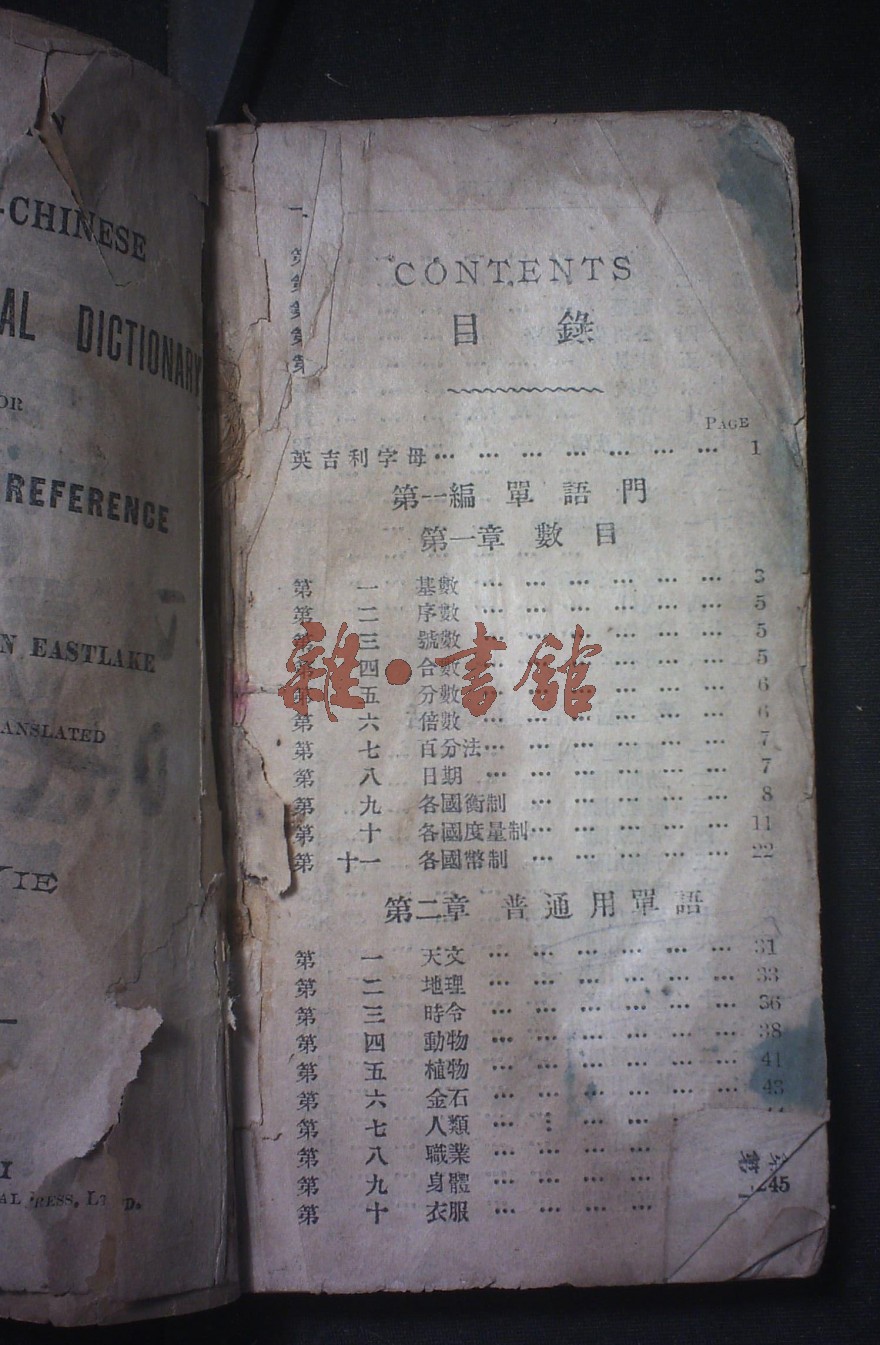 -CHINESE
AL DICTIONARY
OR
REFERENCE
N EASTLAKE
ANSLATED
YIE
I
AL PRESS, LTD.
CONTENTS
目錄
PAGE
英吉利字母… … … … … … … 1
第一編 單語門
第一章 數目
第 一 基數 … … … … … … 3
第 二 序數 … … … … … … 5
第 三 號數 … … … … … … 5
第 四 合數 … … … … … … 5
第 五 分數 … … … … … … 6
第 六 倍數 … … … … … … 6
第 七 百分法… … … … … … 7
第 八 日期 … … … … … … 7
第 九 各國衡制 … … … … … 8
第 十 各國度量制… … … … … 11
第 十一 各國幣制 … … … … … 22
第二章 普通用單語
第 一 天文 … … … … … … 31
第 二 地理 … … … … … … 33
第 三 時令 … … … … … … 36
第 四 動物 … … … … … … 38
第 五 植物 … … … … … … 41
第 六 金石 … … … … … … 43
第 七 人類 … … … … …
第 八 職業 … … … …
第 九 身體 … … … … 245
第 十 衣服 … … … …
雜·書館